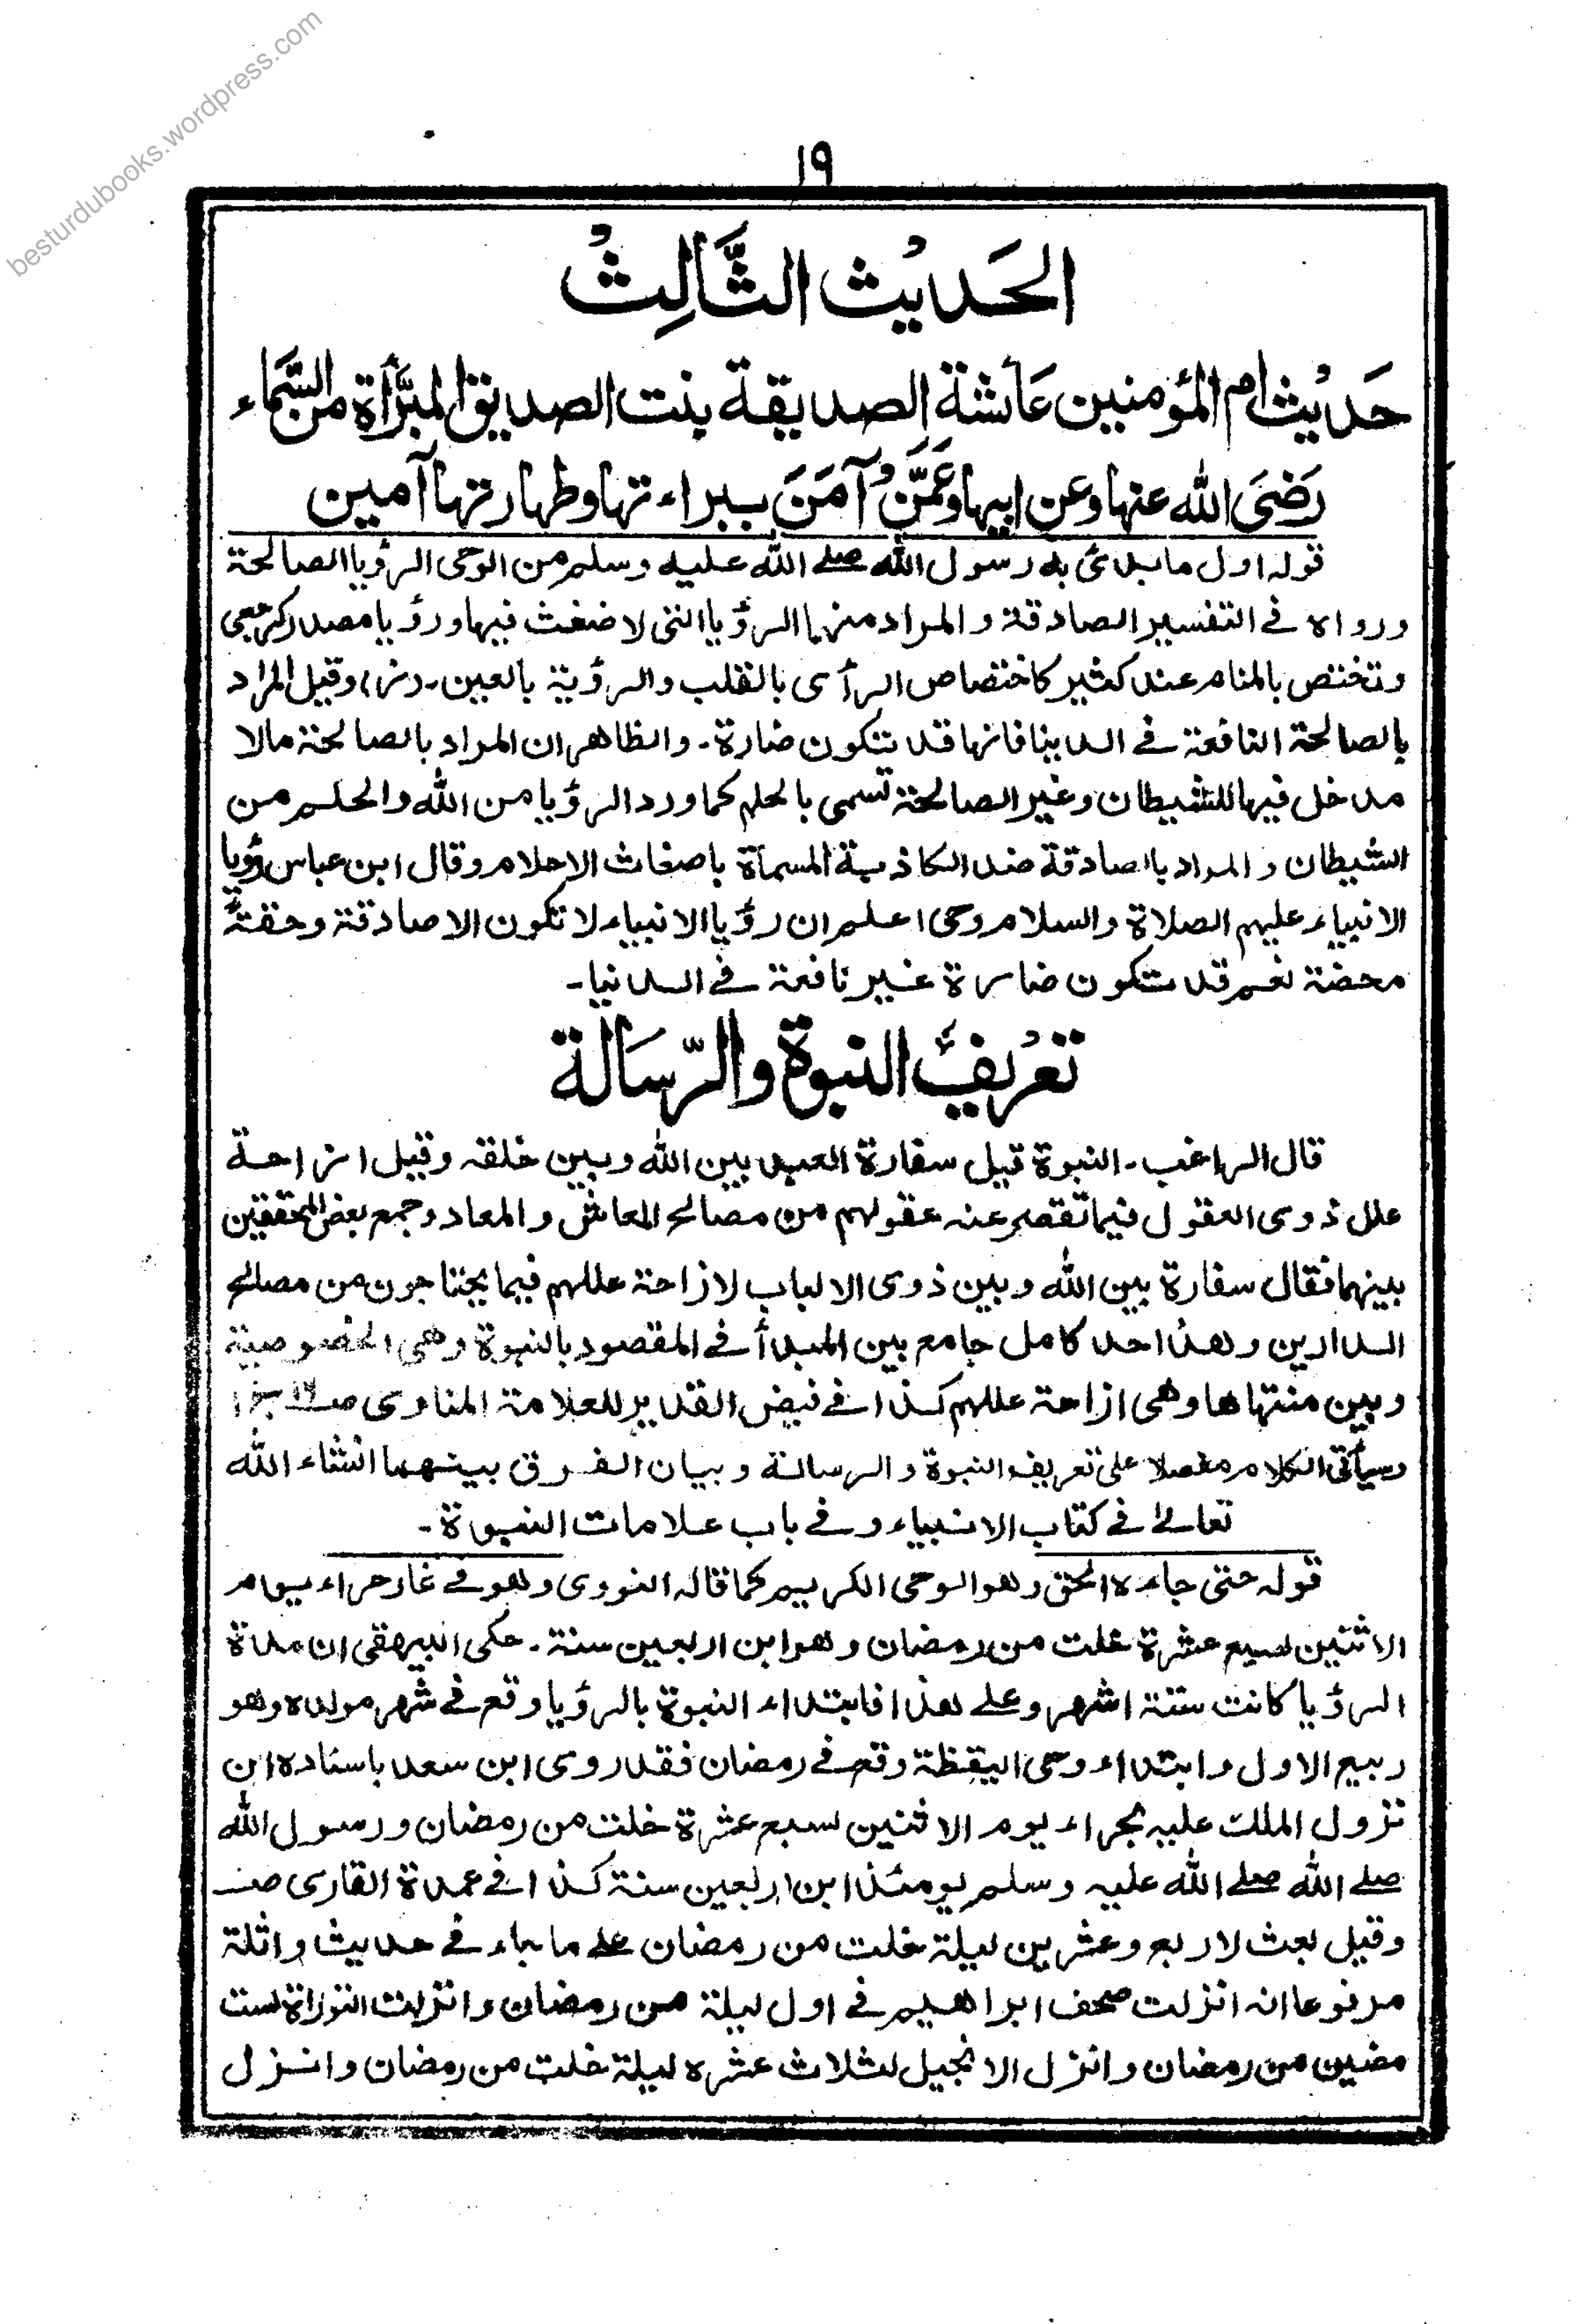 besturdubooks.wordpress.com
١٩
الحَديْث الثَّالِثْ
حَديْث ام المؤمنين عَائشة الصديقة بنت الصديق المبرَّأة من السَّمَاء
رَضىَ الله عنها وعن ابيها وعَمَّنْ آمَنَ ببراءتها وطهارتها آمين
قوله اول ما بدئ به رسول الله صلے الله عليه وسلم من الوحى الرؤيا الصالحة
ورواه فے التفسير الصادقة والمراد منها الرؤيا التى لا ضغث فيها ورؤيا مصدر كرجعى
وتختص بالمنام عند كثير كاختصاص الرأى بالقلب والرؤية بالعين۔ (نر) وقيل المراد
بالصالحة النافعة فے الدنيا فانها قد تكون ضارة۔ والظاهر ان المراد بالصالحة مالا
مدخل فيها للشيطان وغير الصالحة تسمى بالحلم كما ورد الرؤيا من الله والحلم من
الشيطان والمراد بالصادقة ضد الكاذبة المسماة باضغاث الاحلام وقال ابن عباس رؤيا
الانبياء عليهم الصلاة والسلام وحى اعلم ان رؤيا الانبياء لا تكون الا صادقة وحقةً
محضة نعم قد تكون ضارة غير نافعة فے الدنيا۔
تعْريف النبوة والرّسَالة
قال الراغب۔ النبوة قيل سفارة العبد بين الله وبين خلقه وقيل ازاحة
علل ذوى العقول فيما تقصر عنه عقولهم من مصالح المعاش والمعاد وجمع بعض المحققين
بينهما فقال سفارة بين الله وبين ذوى الالباب لازاحة عللهم فيما يحتاجون من مصالح
الدارين وهذا حد كامل جامع بين المبدأ فے المقصود بالنبوة وهى الخصوصية
وبين منتهاها وهى ازاحة عللهم كذا فے فيض القدير للعلامة المناوى صـ١٦ ج ١
وسيأتى الكلام مفصلا على تعريف النبوة والرسالة وبيان الفرق بينهما انشاء الله
تعالے فے كتاب الانبياء وفے باب علامات النبوة۔
قوله حتى جاءه الحق وهو الوحى الكريم كما قاله النووى وهو فے غار حراء يوم
الاثنين لسبع عشرة خلت من رمضان وهو ابن اربعين سنة۔ حكى البيهقى ان مدة
الرؤيا كانت ستة اشهر وعلے هذا فابتداء النبوة بالرؤيا وقع فے شهر مولده وهو
ربيع الاول وابتداء وحى اليقظة وقع فے رمضان فقد روى ابن سعد باسناده ان
نزول الملك عليه بحراء يوم الاثنين لسبع عشرة خلت من رمضان ورسول الله
صلے الله صلے الله عليه وسلم يومئذ ابن اربعين سنة كذا فے عمدة القارى صـ
وقيل بعث لاربع وعشرين ليلة خلت من رمضان علے ما جاء فے حديث واثلة
مرفوعا انه انزلت صحف ابراهيم فے اول ليلة من رمضان وانزلت التوراة لست
مضين من رمضان وانزل الانجيل لثلاث عشره ليلة خلت من رمضان وانزل